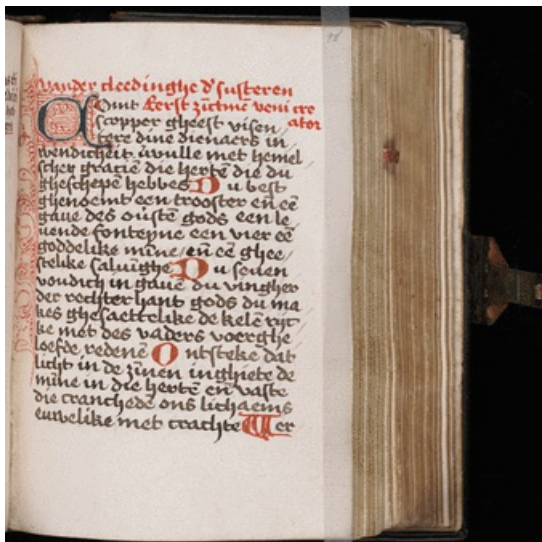 Vander cleedinghe d' susteren
Comt Eerst zītmē veni cre
scepper gheest visen ator
tere dine dienaers in
wendicheit uwulle met hemel
scher gracie die herte die du
ghescepē hebbes Du best
ghenoemt een trooster en eē
gaue des ouste gods een le
uende fonteyne een vier eē
goddelike mīne en eē ghee
stelike saluinghe Du seuen
voudich in gaue du vingher
der rechter hant gods du ma
kes ghesaettelike de kelē rijt
ke met des vaders voerghe
loefde redenē Ontsteke dat
licht in de zinen inghiete de
mīne in die hertē eñ vaste
die cranchede ons lichaems
euwelike met crachte Wer